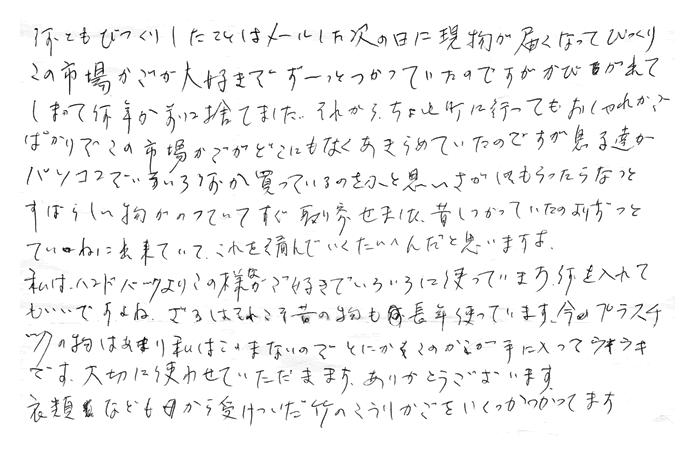 何ともびっくりしたことはメールした次の日に現物が届くなってびっくり
この市場かごが大好きでずーっとつかっていたのですがかびが来て
しまって何年か前に捨てました。それから、ちょっと町に行ってもおしゃれかご
ばかりでこの市場かごがどこにもなくあきらめていたのですが息子達が
パソコンでいろいろ何か買っているのをふと思いさがしてもらったらなっと
すばらしい物がのっていてすぐ取り寄せました、昔しつかっていたのよりずっと
ていねいに出来ていて、これを編んでいくたいへんだと思いますよ。
私は、ハンドバックよりこの様なかご好きでいろいろに使っています、何を入れて
もいいですよね、ざるはそれこそ昔の物も長年使っています、今のプラスチ
ックの物はあまり私はこのまないのでとにかくこのかごが手に入ってウキウキ
です、大切に使わせていただきます、ありがとうございます。
衣類なども母から受けついだ竹のこうりかごをいくつかつかってます